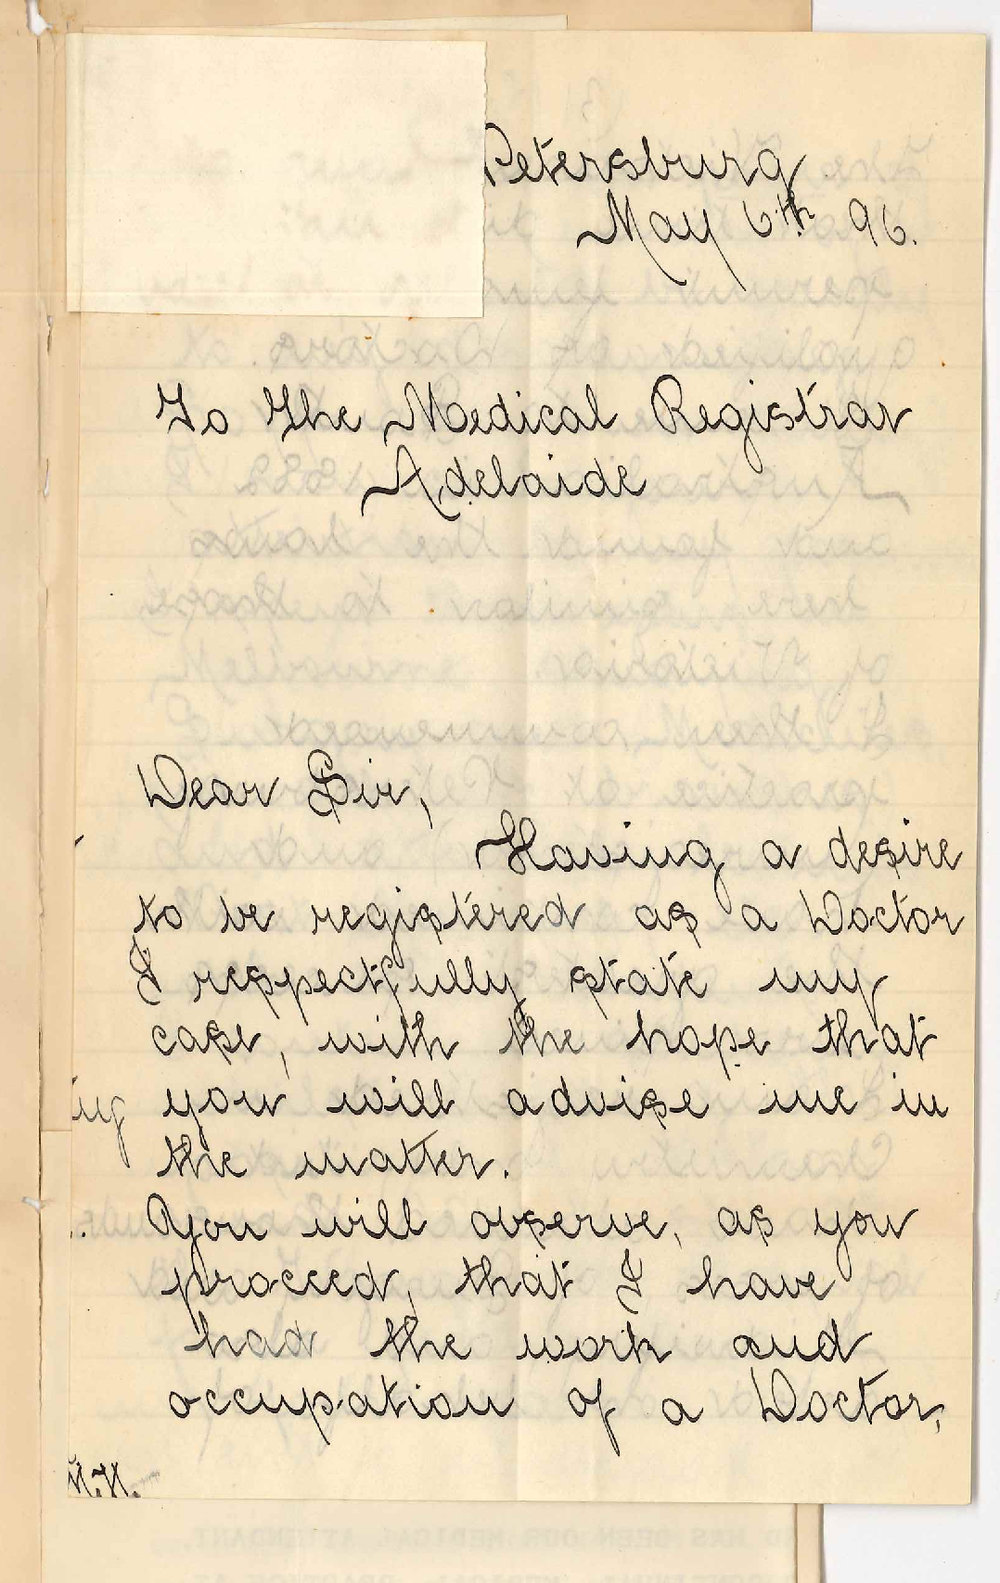 Petersburg
May 6th 96.
To The Medical Registrar
Adelaide
Dear Sir,
Having a desire
to be registered as a Doctor
I respectfully state my
case, with the hope that
you will advise me in
the matter.
You will observe, as you
proceed, that I have
had the work and
occupation of a Doctor,
HAS BEEN OUR MEDICAL ATTENDANT.